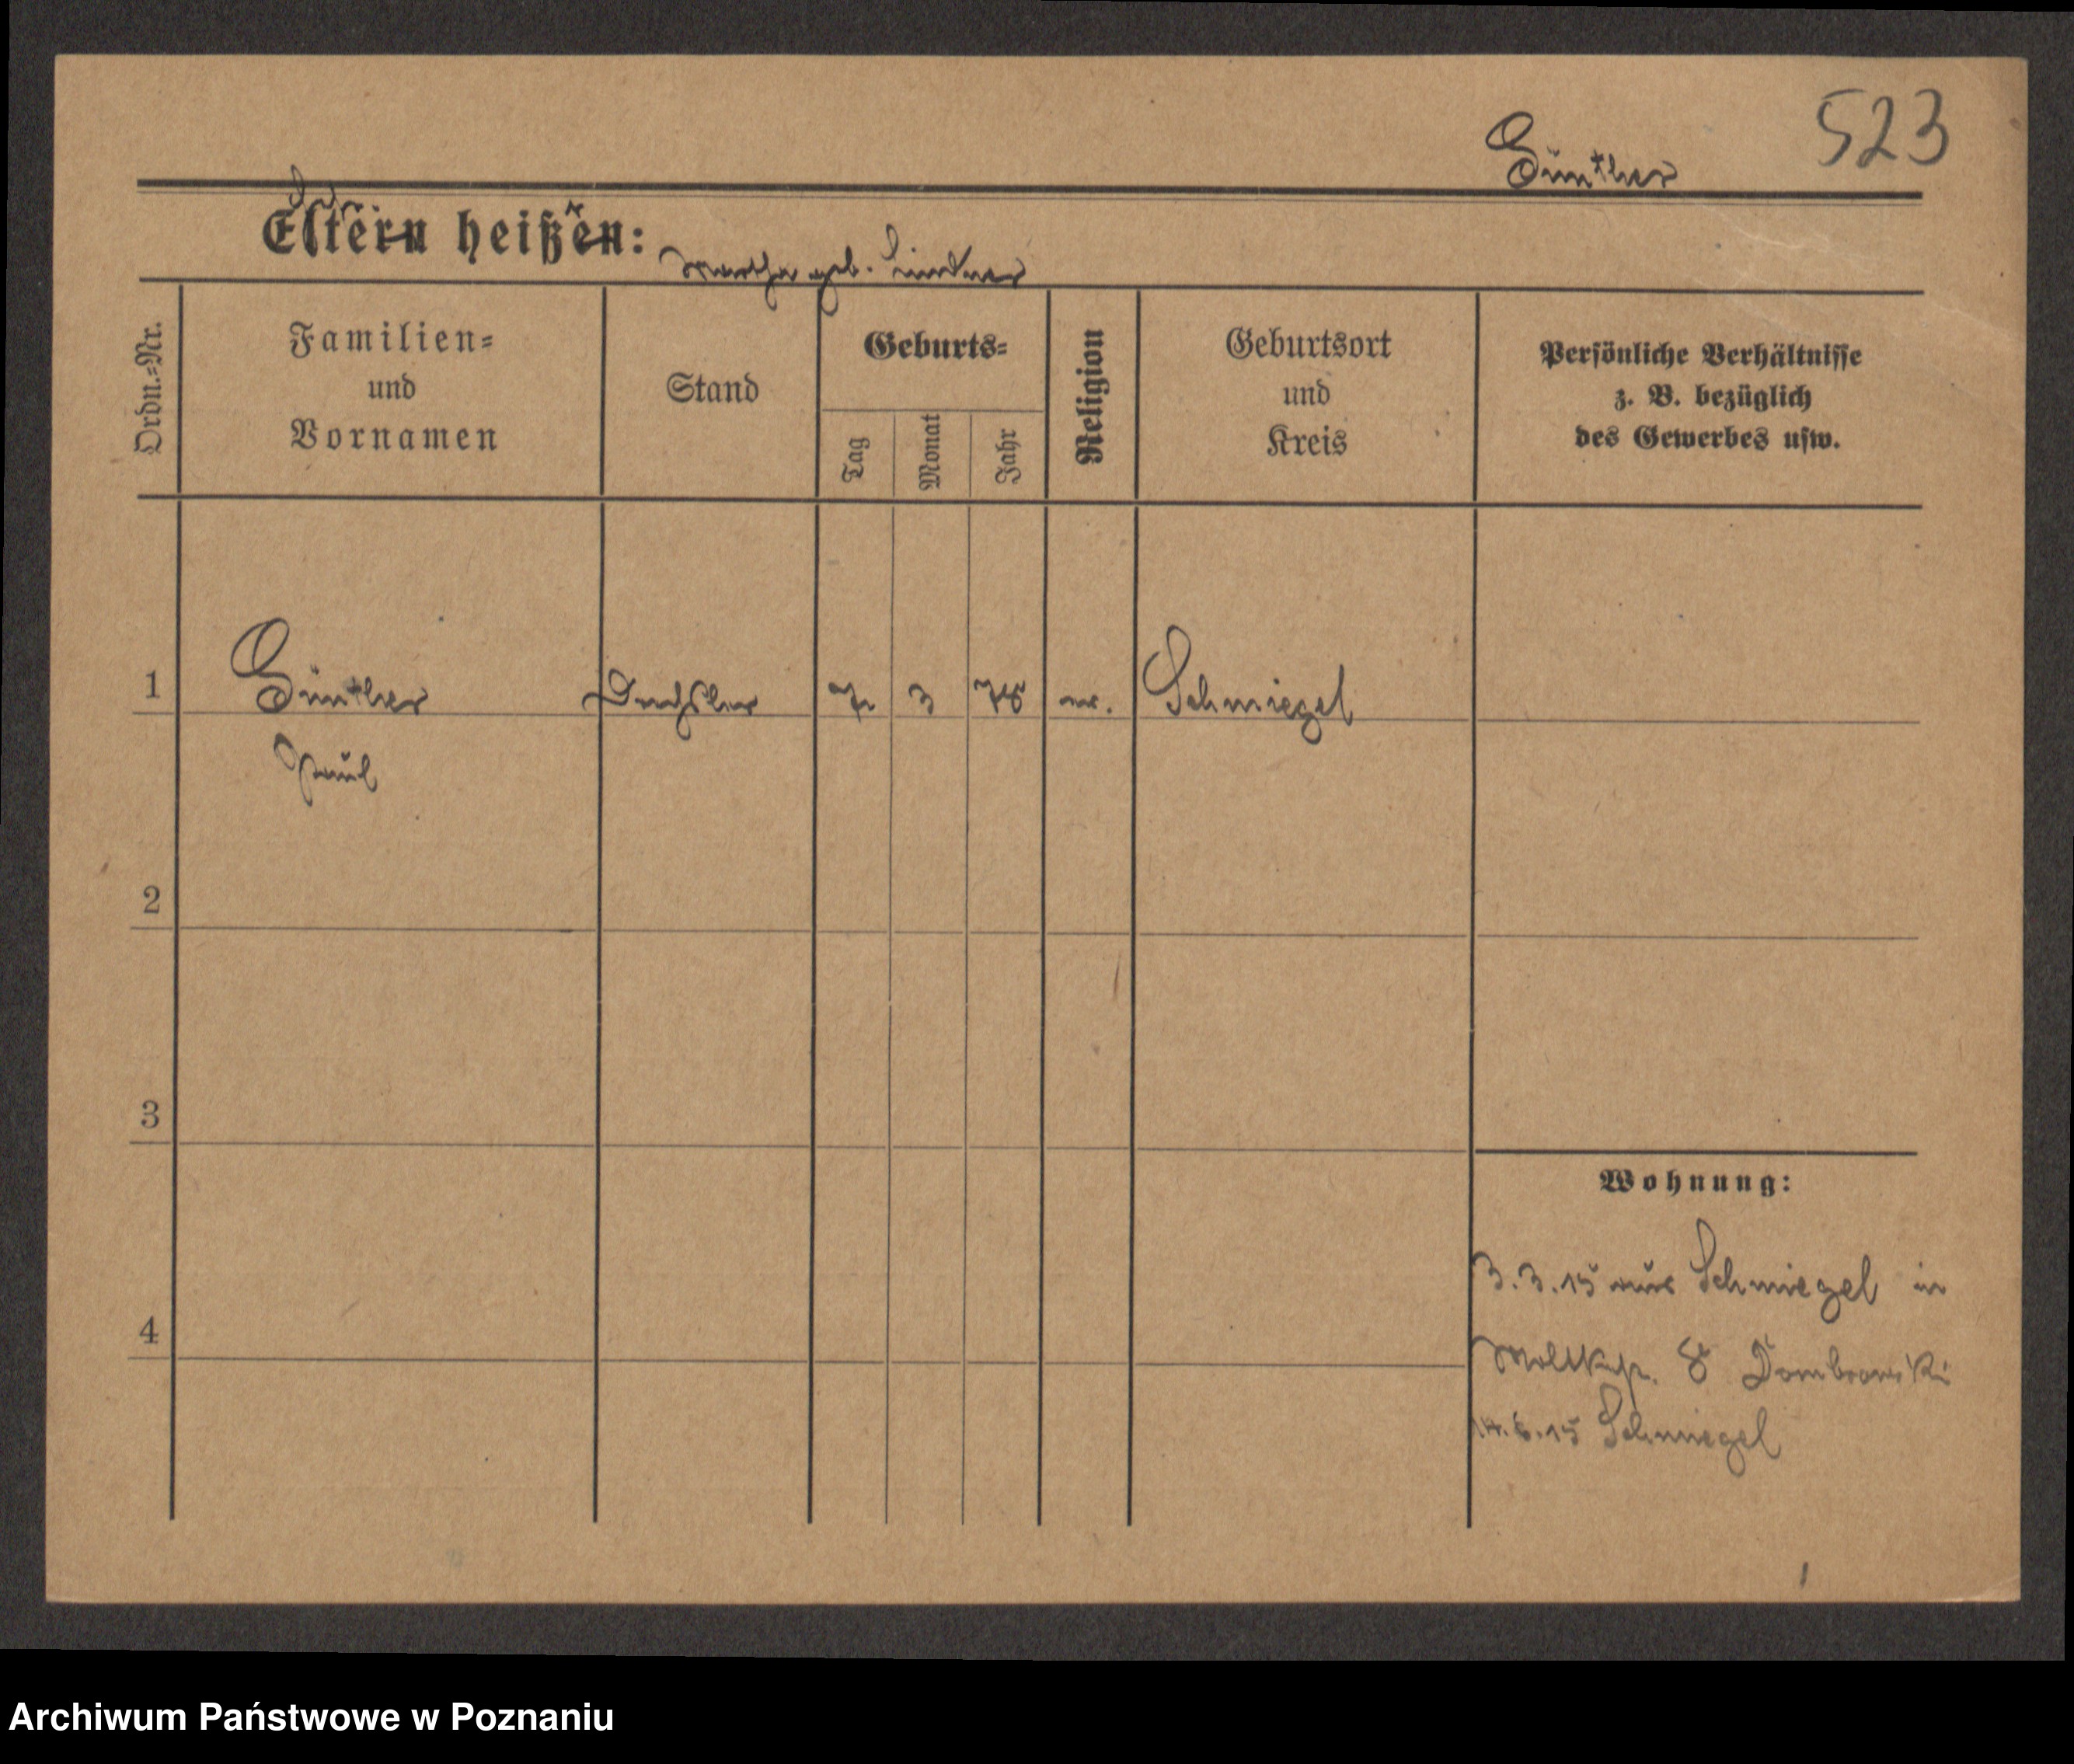 523
Günther
Eltern heißen:
Martha geb. Lindner
Ordn.=Nr.
Familien=
und
Vornamen
Stand
Geburts=
Tag
Monat
Jahr
Religion
Geburtsort
und
Kreis
Persönliche Verhältnisse
z. B. bezüglich
des Gewerbes usw.
1 Günther Drechsler 7. 3 78 ev. Schmiegel
Paul
2
3
Wohnung:
3.3.15 aus Schmiegel in
4
Moltkestr. 8 Dombrowski
14.6.15 Schmiegel
Archiwum Państwowe w Poznaniu